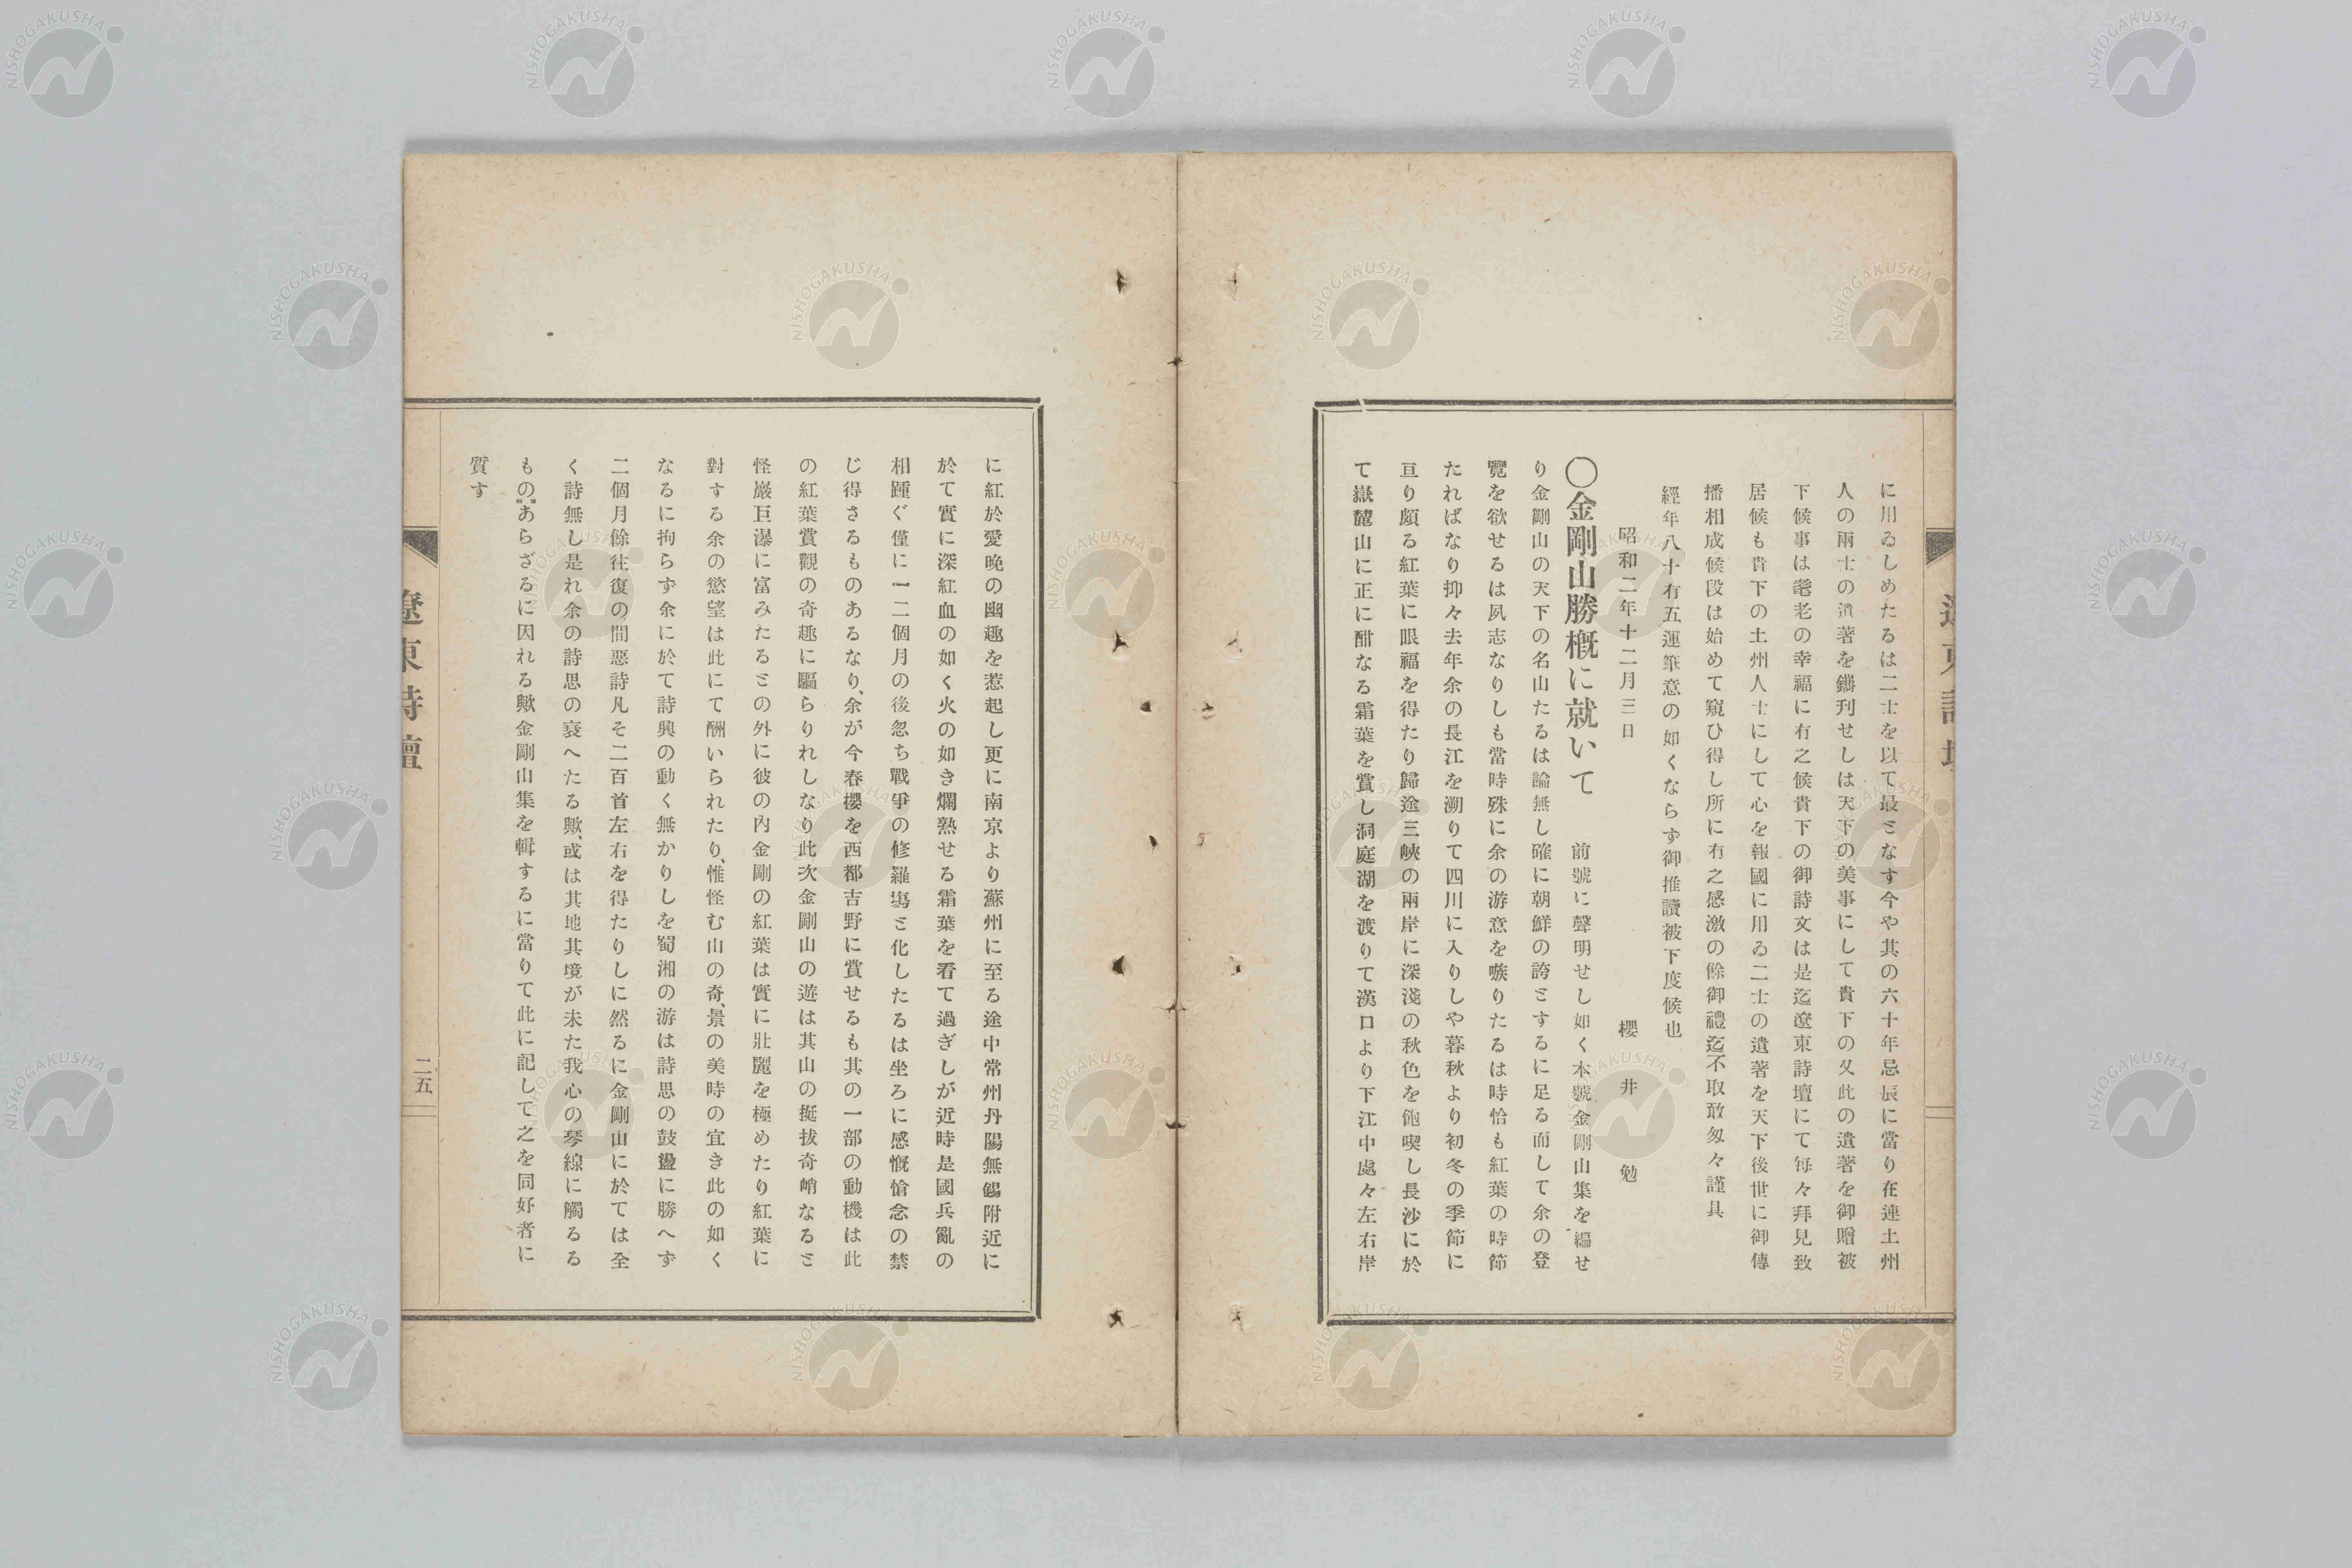 に用ゐしめたるは二士を以て最となす今や其の六十年忌辰に當り在連土州
人の兩士の遺著を鐫刊せしは天下の美事にして貴下の又此の遺著を御贈被
下候事は耄老の幸福に有之候貴下の御詩文は是迄遼東詩壇にて每々拜見致
居候も貴下の土州人士にして心を報國に用る二士の遺著を天下後世に御傳
播相成候段は始めて窺ひ得し所に有之感激の餘御禮迄不取敢匆々謹具
經年八十有五運筆意の如くならず御推讀被下度候也
昭和二年十二月三日 櫻井勉
〇金剛山勝槪に就いて 前號に聲明せし如く本號金剛山集を編せ
り金剛山の天下の名山たるは論無し確に朝鮮の誇とするに足る而して余の登
覽を欲せるは夙志なりしも當時殊に余の游意を嗾りたるは時恰も紅葉の時節
たればなり抑々去年余の長江を溯りて四川に入りしや暮秋より初冬の季節に
亘り頗る紅葉に眼福を得たり歸途三峽の兩岸に深淺の秋色を飽喫し長沙に於
て嶽麓山に正に酣なる霜葉を賞し洞庭湖を渡りて漢口より下江中處々左右岸
に紅於愛晚の幽趣を惹起し更に南京より蘇州に至る途中常州丹陽無錫附近に
於て實に深紅血の如く火の如き爛熟せる霜葉を看て過ぎしが近時是國兵亂の
相踵ぐ僅に一二個月の後忽ち戰爭の修羅塲と化したるは坐ろに感慨愴念の禁
じ得さるものあるなり、余が今春櫻を西都吉野に賞せるも其の一部の動機は此
の紅葉賞觀の奇趣に驅らりれしなり此次金剛山の遊は其山の挺拔奇峭なると
怪巖巨瀑に富みたるとの外に彼の內金剛の紅葉は實に壯麗を極めたり紅葉に
對する余の慾望は此にて酬いられたり、惟怪む山の奇、景の美時の宜き此の如く
なるに拘らず余に於て詩興の動く無かりしを蜀湘の游は詩思の鼓盪に勝へず
二個月餘往復の間惡詩凡そ二百首左右を得たりしに然るに金剛山に於ては全
く詩無し是れ余の詩思の衰へたる歟、或は其地其境が未た我心の琴線に觸るる
ものあらざるに因れる歟金剛山集を輯するに當りて此に記して之を同好者に
質す
遼東詩壇
二五